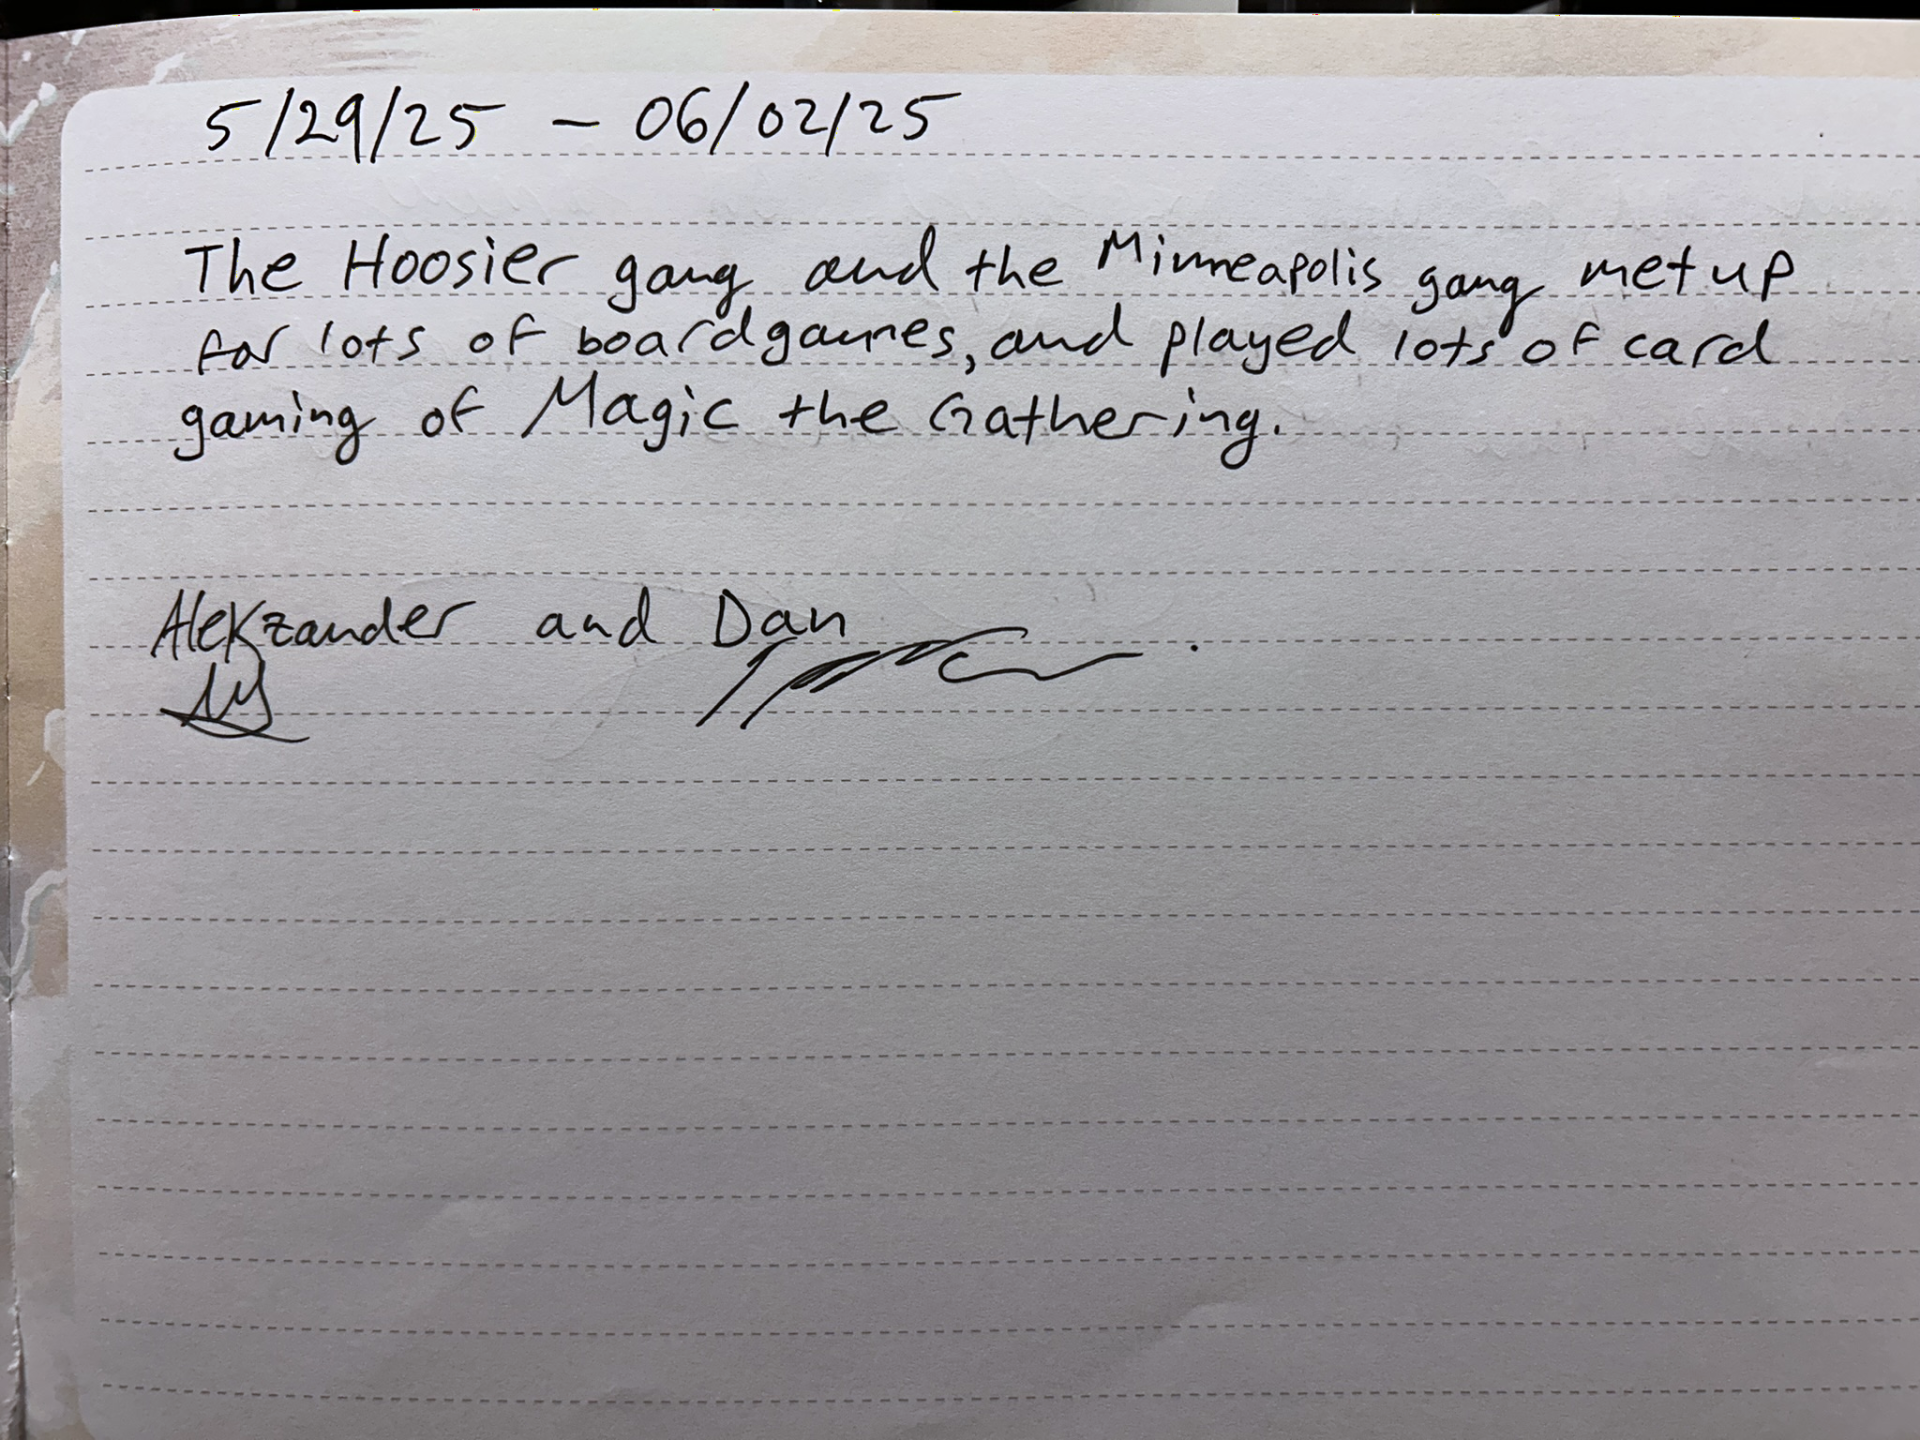 5/29/25 - 06/02/25
The Hoosier gang and the Minneapolis gang met up
for lots of boardgames, and played lots of card
gaming of Magic the Gathering.
Alekzander and Dan